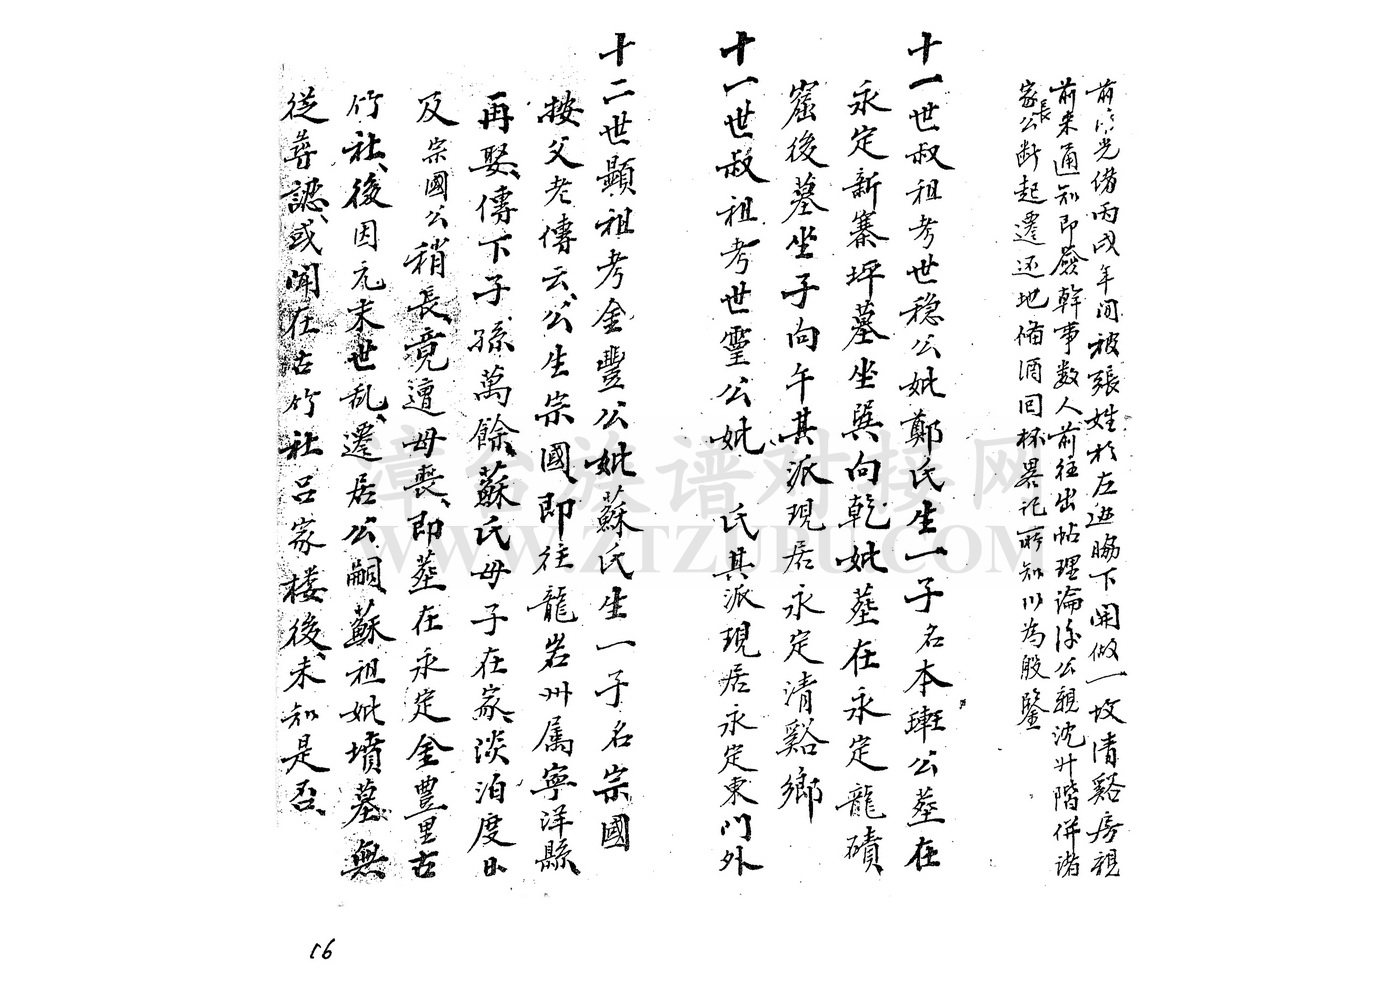 前 光緒丙戌年间被張姓於左边脇下開做一坟清谿房親
前来通知即發幹事数人前往出帖理論 公親沈廾階併諸
家長公断起遷还地俻酒回杯異记所知以為殷鑒
十一世叔祖考世穏公妣鄭氏生一子名本 公葬在
永定新寨坪墓坐巽向乾妣葬在永定龍磧
窟後墓坐子向午其派現居永定清谿鄉
十一世叔祖考世靈公妣 氏其派現居永定東門外
十二世顯祖考金豐公妣蘇氏生一子名宗國
按父老傳云公生宗國即往龍岩州属寧洋縣
再娶傳下子孫萬餘蘇氏母子在家淡泊度日
及宗國公稍長竟遭母喪即葬在永定金豊里古
竹社後因元末世乱遷居公嗣蘇祖妣墳墓無
從尋認或聞在古竹社呂家楼後未知是否
16
漳台族谱对接网
WWW.ZTZUPU.COM